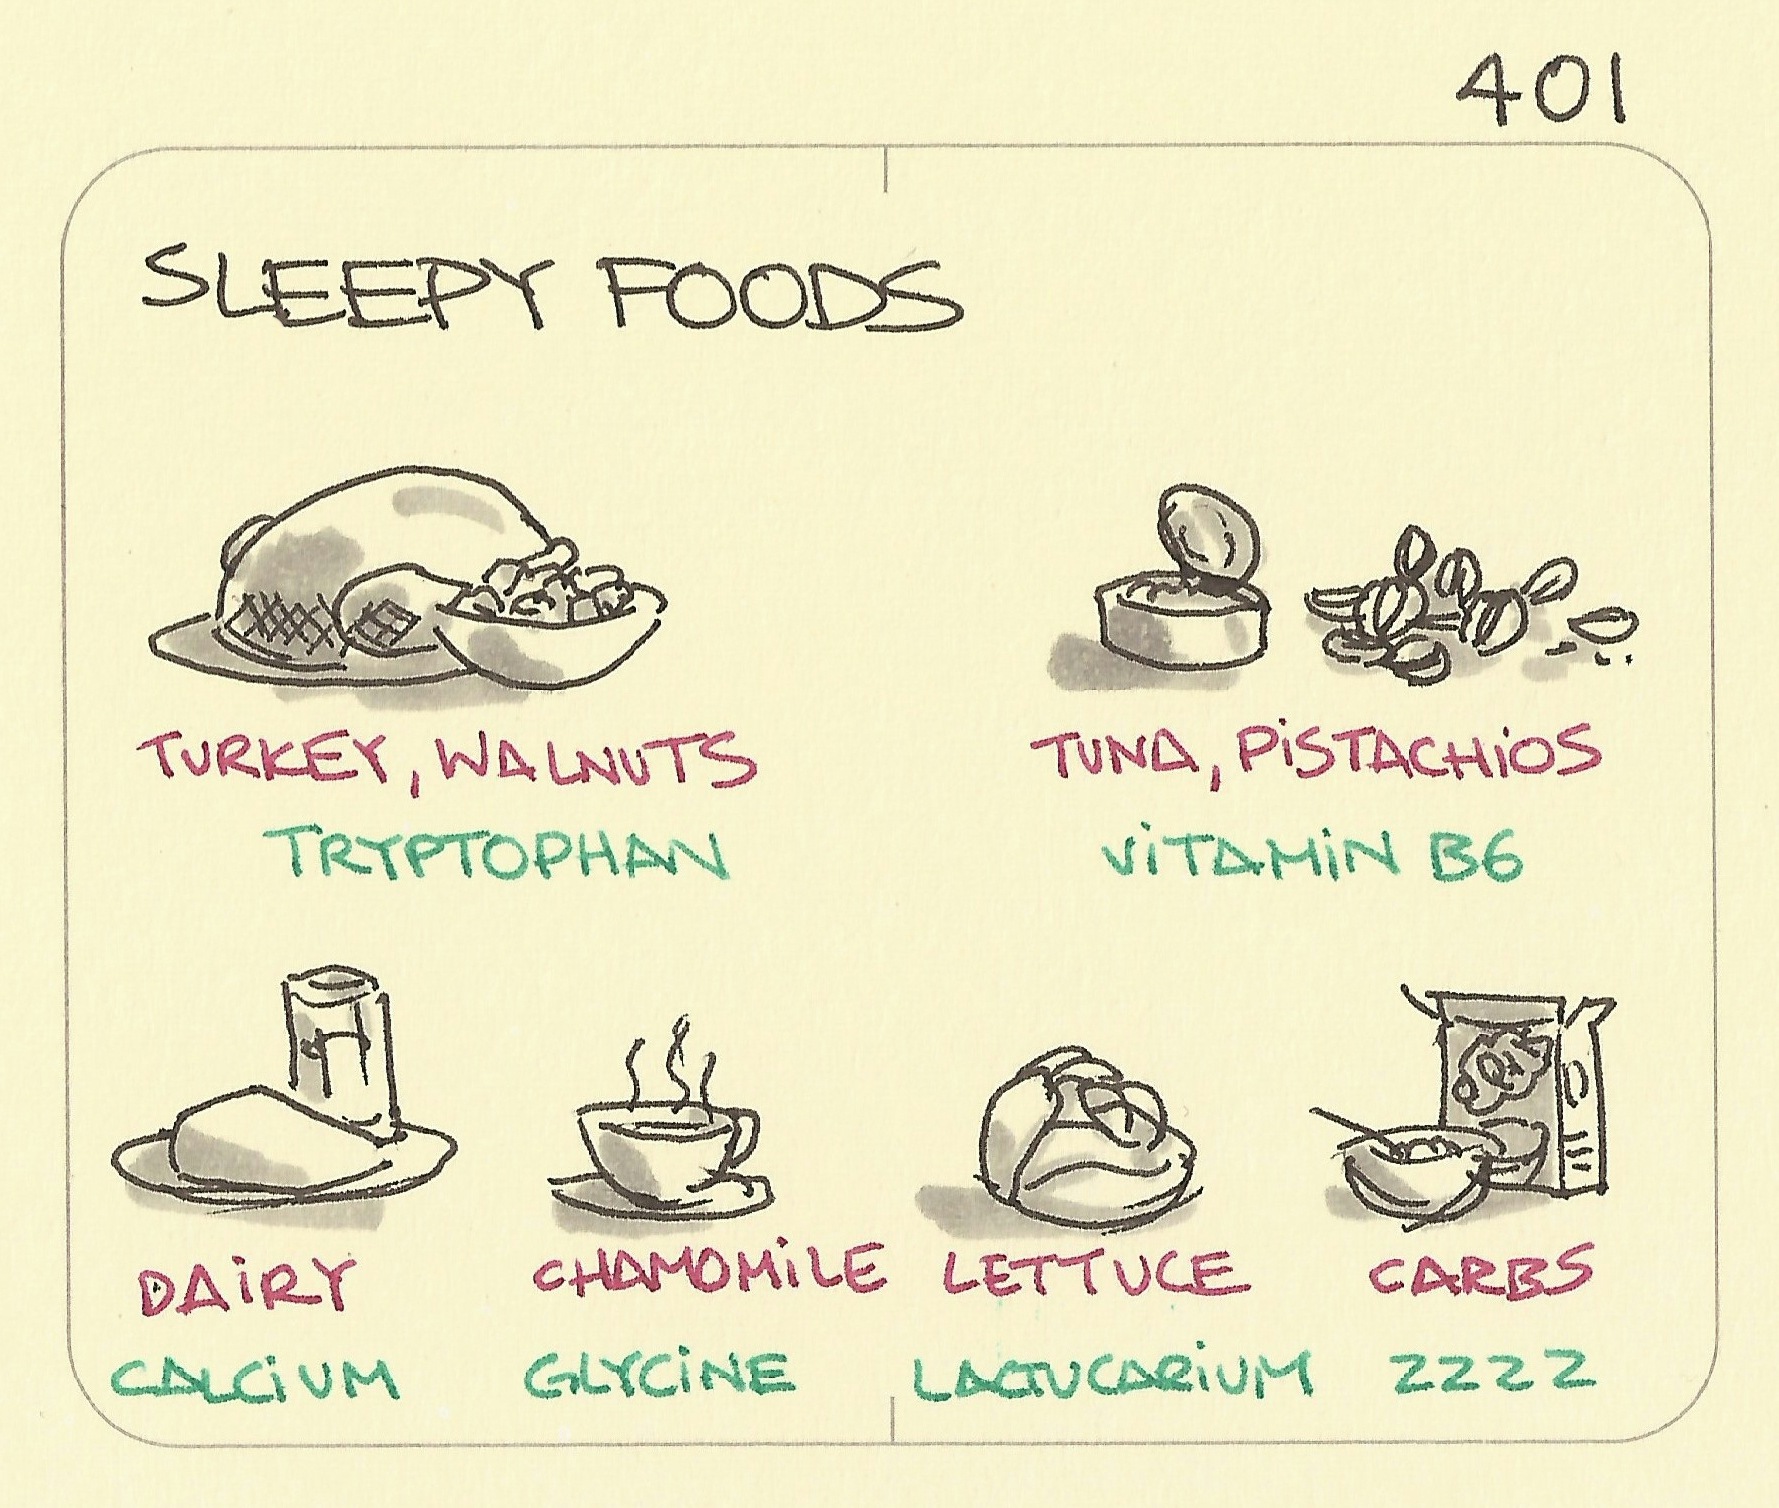 401
SLEEPY FOODS
TURKEY, WALNUTS
TRYPTOPHAN
TUNA, PiSTACHiOS
ViTAMiN B6
DAiRY
CALCiUM
CHAMOMiLE
GLYCiNE
LETTUCE
LACTUCARiUM
CARBS
ZZZZ